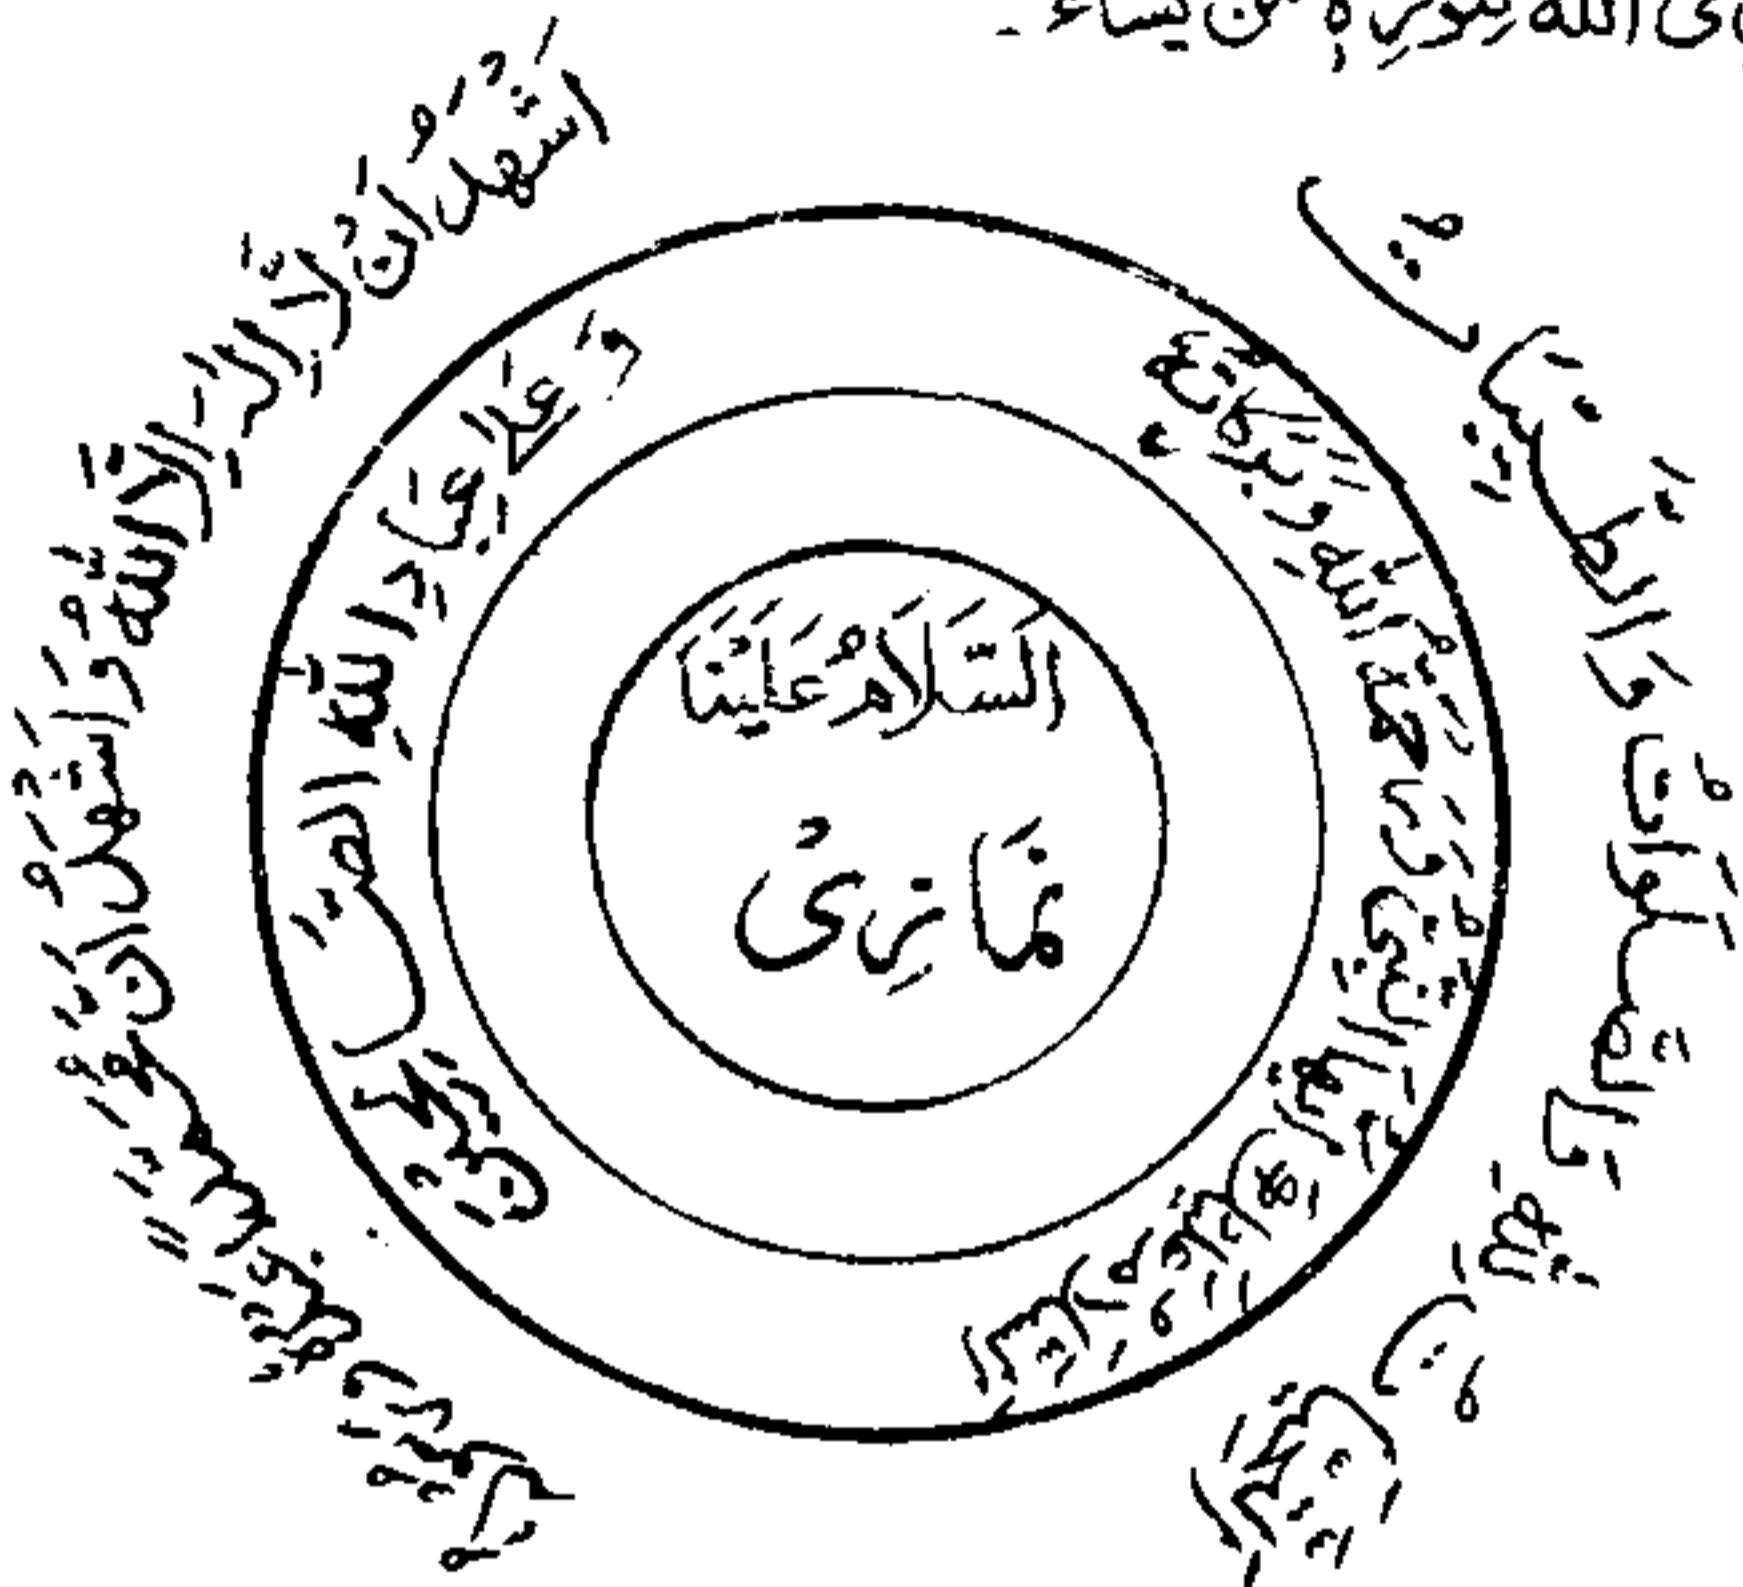 اللہ بِنُورِہٖ مَن یَشَاءُ ۔
اَلتَّحِیَّاتُ لِلّٰہِ وَالصَّلَوَاتُ وَالطَّیِّبَاتُ
اَلسَّلَامُ عَلَیْکَ اَیُّہَا النَّبِیُّ وَرَحْمَۃُ اللہِ وَبَرَکَاتُہٗ
اَلسَّلَامُ عَلَیْنَا
نَمَازِیْ
وَعَلٰی عِبَادِ اللّٰہِ الصّٰلِحِیْنَ
اَشْہَدُ اَنْ لَّا اِلٰہَ اِلَّا اللّٰہُ وَاَشْہَدُ اَنَّ مُحَمَّدًا عَبْدُہٗ وَرَسُوْلُہٗ